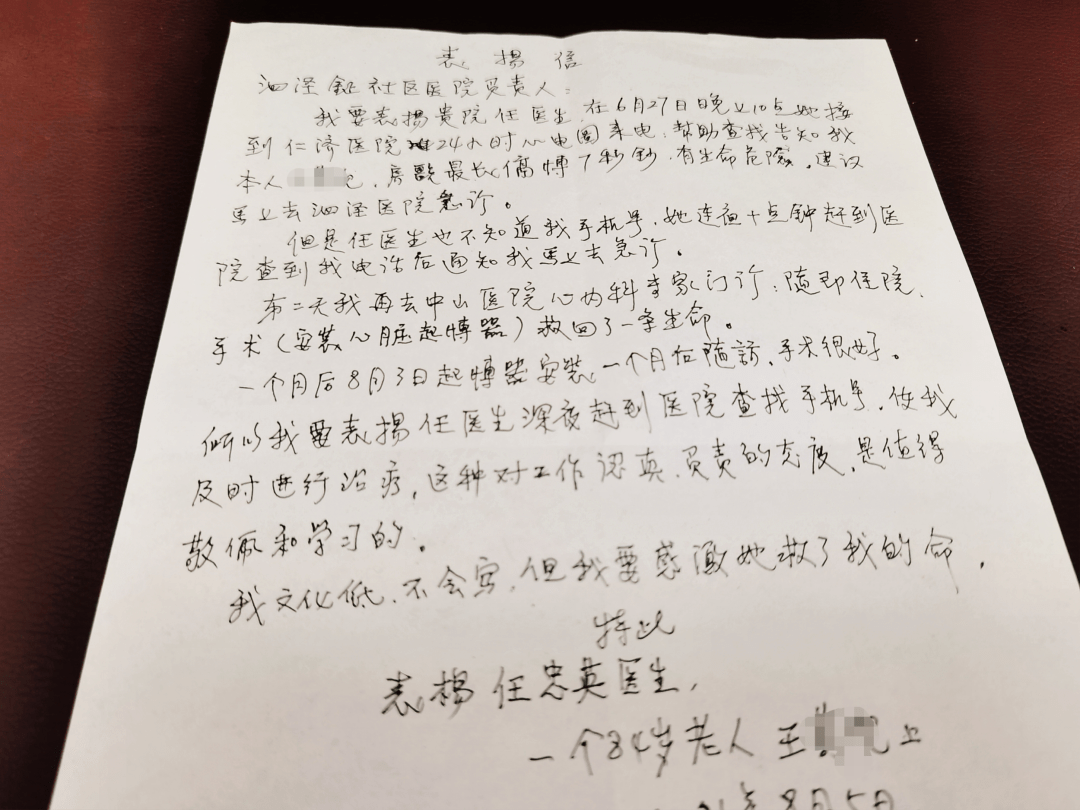 表揚信
泗泾鎮社区医院负责人：
我要表揚贵院任医生.在6月27日晚上10点她接
到仁济医院24小时心电图来电，帮助查找告知我
本人，房颤最长停愽7秒钞，有生命危险，建议
馬上去泗泾医院急诊。
但是任医生也不知道我手机号，她连夜十点钟赶到医
院查到我电话后通知我馬上去急诊。
第二天我再去中山医院心内科专家门诊，随即住院，
手术（安装心脏起愽器）救回了一条生命。
一个月后8月3日起愽器安装一个月在随訪，手术很好。
所以我要表揚任医生深夜赶到医院查找手机号，使我
及时进行治疗，这种对工作認真、负责的态度，是值得
敬佩和学习的。
我文化低、不会写，但我要感激她救了我的命，
特此
表揚任忠英医生，
一个84岁老人王上
8月5日